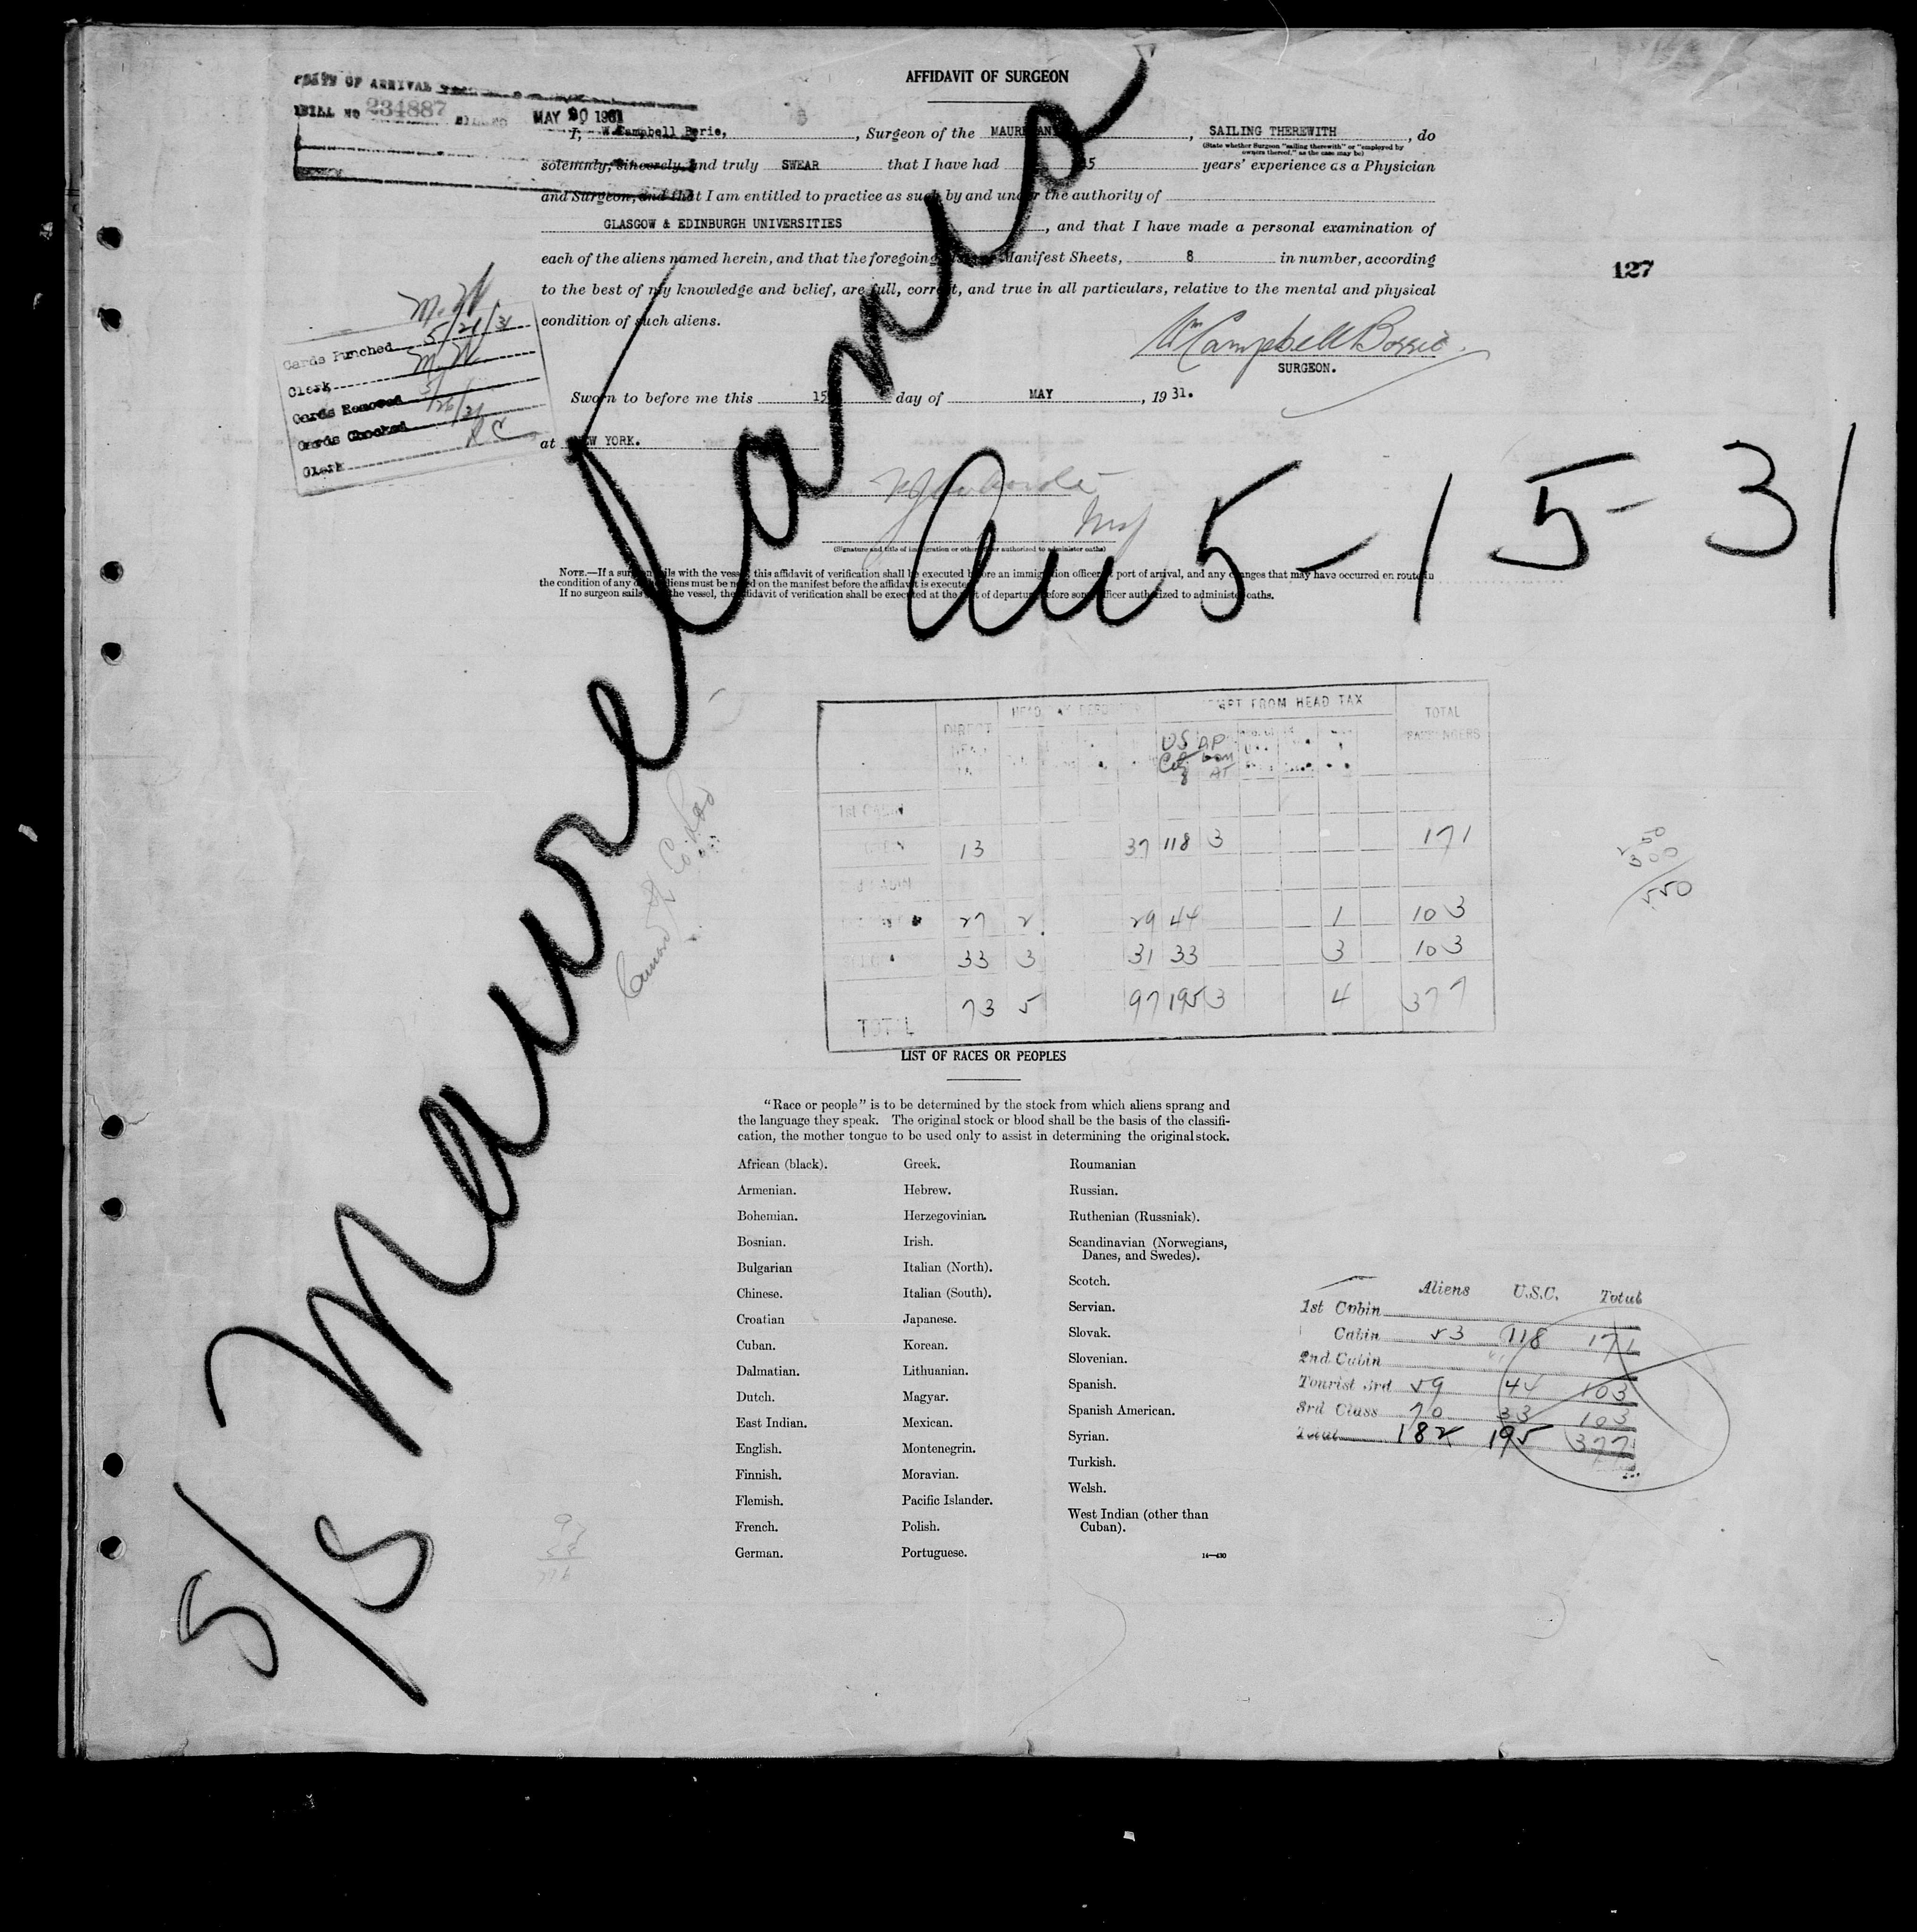 AFFIDAVIT OF SURGEON
BILL NO 234887 MAY 20 1931
I, W. Campbell Borie, , Surgeon of the MAURETANIA , SAILING THEREWITH , do
(State whether Surgeon "sailing therewith" or "employed by owners thereof," as the case may be)
solemnly, sincerely, and truly SWEAR that I have had years' experience as a Physician
and Surgeon, and that I am entitled to practice as such by and under the authority of
GLASGOW & EDINBURGH UNIVERSITIES , and that I have made a personal examination of
each of the aliens named herein, and that the foregoing Manifest Sheets, 8 in number, according
to the best of my knowledge and belief, are full, correct, and true in all particulars, relative to the mental and physical
condition of such aliens.
127
M.W
Cards Punched 5/21/31
Clerk M.W
Cards Removed
Cards Checked 5/26/31
Clerk RC
Wm Campbell Borrie
SURGEON.
Sworn to before me this 15 day of MAY , 19 31.
at NEW YORK.
Insp
(Signature and title of immigration or other officer authorized to administer oaths)
NOTE.—If a surgeon sails with the vessel, this affidavit of verification shall be executed before an immigration officer at port of arrival, and any changes that may have occurred en route in
the condition of any of the aliens must be noted on the manifest before the affidavit is executed.
If no surgeon sails with the vessel, the affidavit of verification shall be executed at the port of departure before some officer authorized to administer oaths.
Mauretania
5/8
Arr 5-15-31
DIRECT HEAD TAX EXEMPT FROM HEAD TAX TOTAL PASSENGERS
US Citz
1st CABIN
CABIN 13 37 118 3 171
2nd CABIN
27 2 29 44 1 103
33 3 31 33 3 103
TOTAL 73 5 97 195 3 4 377
250
300
550
LIST OF RACES OR PEOPLES
"Race or people" is to be determined by the stock from which aliens sprang and
the language they speak. The original stock or blood shall be the basis of the classifi-
cation, the mother tongue to be used only to assist in determining the original stock.
African (black). Greek. Roumanian
Armenian. Hebrew. Russian.
Bohemian. Herzegovinian. Ruthenian (Russniak).
Bosnian. Irish. Scandinavian (Norwegians,
Danes, and Swedes).
Bulgarian Italian (North).
Scotch.
Chinese. Italian (South).
Servian.
Croatian Japanese.
Slovak.
Cuban. Korean.
Slovenian.
Dalmatian. Lithuanian.
Spanish.
Dutch. Magyar.
Spanish American.
East Indian. Mexican.
Syrian.
English. Montenegrin.
Turkish.
Finnish. Moravian.
Welsh.
Flemish. Pacific Islander.
West Indian (other than
Cuban).
French. Polish.
German. Portuguese.
14—430
Aliens U.S.C. Total
1st Cabin
Cabin 53 118 171
2nd Cabin
Tourist 3rd 59 44 103
3rd Class 70 33 103
Total 182 195 377